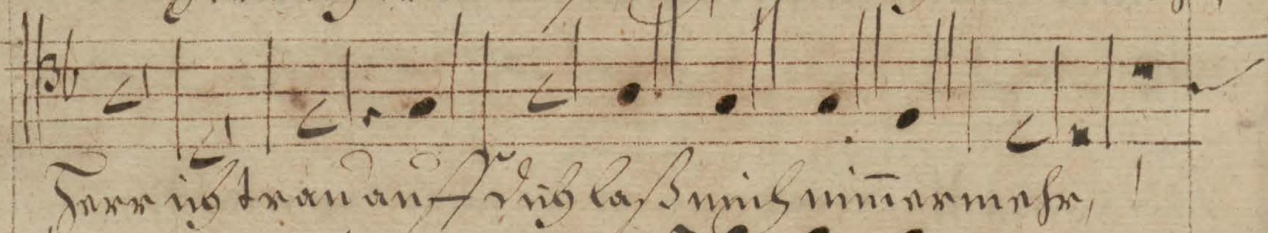 Herr ich trau auff dich laß mich nim̄ermehr,